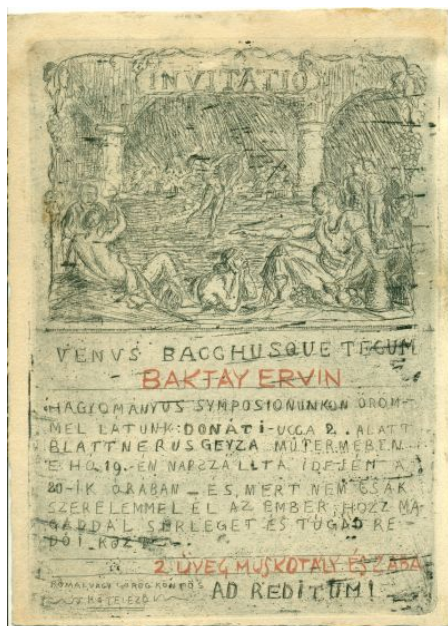 INVITATIO
VENVS BACCHUSQUE TECUM
BAKTAY ERVIN
HAGYOMÁNYOS SYMPOSIONUNKON ÖRÖM-
MEL LÁTUNK: DONÁTI-UCCA 2. ALATT
BLATTNERUS GEYZA MŰTERMÉBEN
E HÓ 19.-ÉN NAPSZÁLLTA IDEJÉN A
20-IK ÓRÁBAN – ÉS, MERT NEM CSAK
SZERELEMMEL ÉL AZ EMBER, HOZZ MA-
GADDAL SERLEGET ÉS TÓGÁD RE-
DŐI KÖZÖTT
2 ÜVEG MUSKOTÁLY ÉS
RÓMAI, VAGY GÖRÖG KÖNTÖS
KÖTELEZŐ
AD REDITUM!